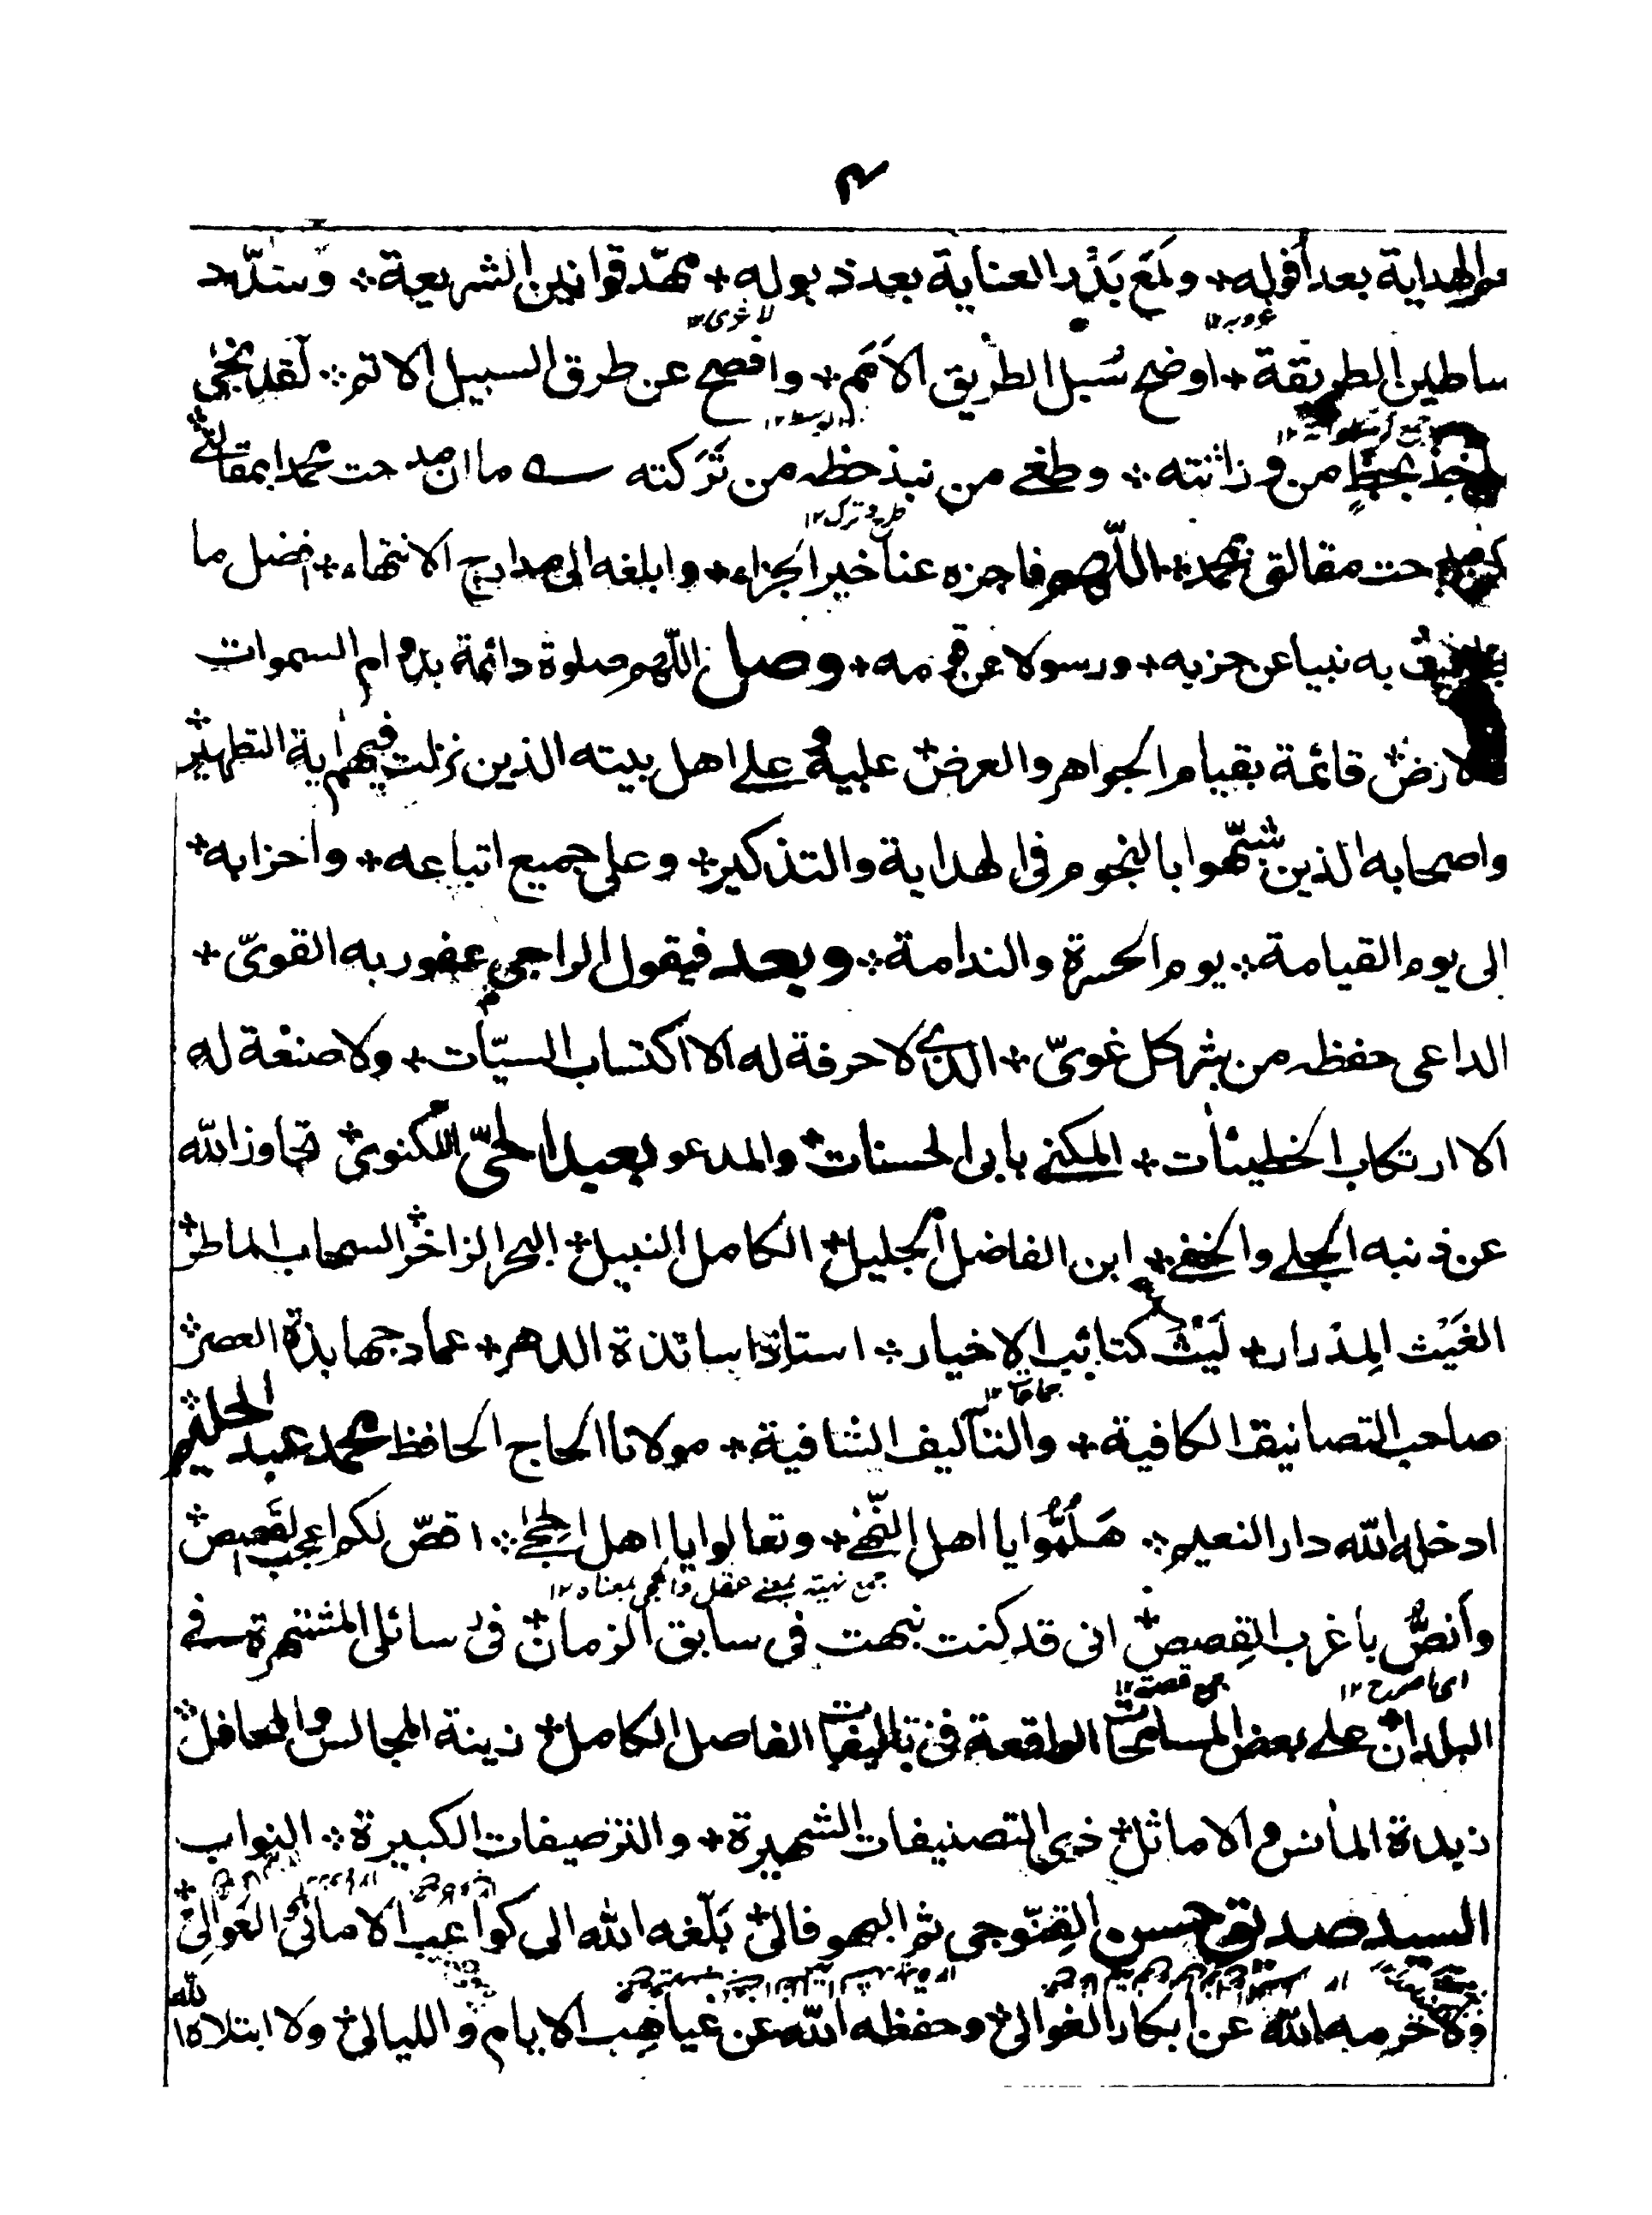 الهداية بعد أفوله + ولمع بَدْر العناية بعد ذبوله + مهّد قوانين الشريعة ؞ وسدّد
غروبه ١٢
لاغرى ١٢
ساطين الطريقة + اوضح سُبل الطريق الاَمَم + وافصح عن طرق السبيل الاتم ؞ لقد نجٰى
جمع ١٢
بحظٍّ من وراثته ؞ وطغے من نبذ حظہ من تَركته ؎ ما ان مدحت محمدا بمقالتے +
طرح وترك ١٢
مدحت مقالتي بمحمد + اللّٰهم فاجزه عنا خير الجزاء + وابلغه الى مدارج الانتهاء + افضل ما
به نبيا عن حزبه + ورسولا عن قومه + وصل اللّٰهم صلوة دائمة بدوام السموات
لارض + قائمة بقيام الجواهر والعرض + عليه وعلے اهل بيته الذين نزلت فيهم اٰية التطهير +
واصحابه الذين شبّهوا بالنجوم فى الهداية والتذكير + وعلى جميع اتباعه + واحزابه +
الى يوم القيامة ؞ يوم الحسرة والندامة ؞ وبعد فيقول الراجي عفو ربه القوىّ +
الداعى حفظہ من شر كل غوىّ + الذى لا حرفة له الا اكتساب السيّات + ولا صنعة له
الا ارتكاب الخطيئات + المكنے بابى الحسنات + والمدعو بعبد الحىّ اللكنوى + تجاوز الله
عن ذنبه الجلے والخفے + ابن الفاضل الجليل + الكامل النبيل + البحر الزاخر + السحاب الماطر +
الغَيْث المِدْرار + لَيْث كتائب الاخيار ؞ استاذ اساتذة الدهر + عماد جهابذة العصر ؞
جماعات ١٢
صاحب التصانيف الكافية + والتآليف الشافية + مولانا الحاج الحافظ محمد عبد الحليم ؞
ادخله الله دار النعيم ؞ هَلُمُّوا يا اهل النُّهٰے + وتعالوا يا اهل الحِجٰے ؞ اقصّ لكم اعجب القَصص +
جمع نهية بمعنے عقل والحجى بمعناه ١٢
وأنصُّ باغرب القِصص + انى قد كنت نبهت فى سابق الزمان + فى رسائلى المشتهرة فے
اى اصرح ١٢
جمع قصة ١٢
البلدان + علے بعض المسامحات الواقعة فى تاليفات الفاضل الكامل + زينة المجالس والمحافل ؞
زبدة المأنس والاماثل + ذى التصنيفات الشهيرة + والترصيفات الكبيرة ؞ النواب
السيد صديق حسن القِنّوجى ثم البهوفالى + بَلّغه الله الى كواعب الامانى الغَوالى +
ولا حرمه الله عن ابكار الغوالى + وحفظه الله عن غياهب الايام والليالى + ولا ابتلاه الله